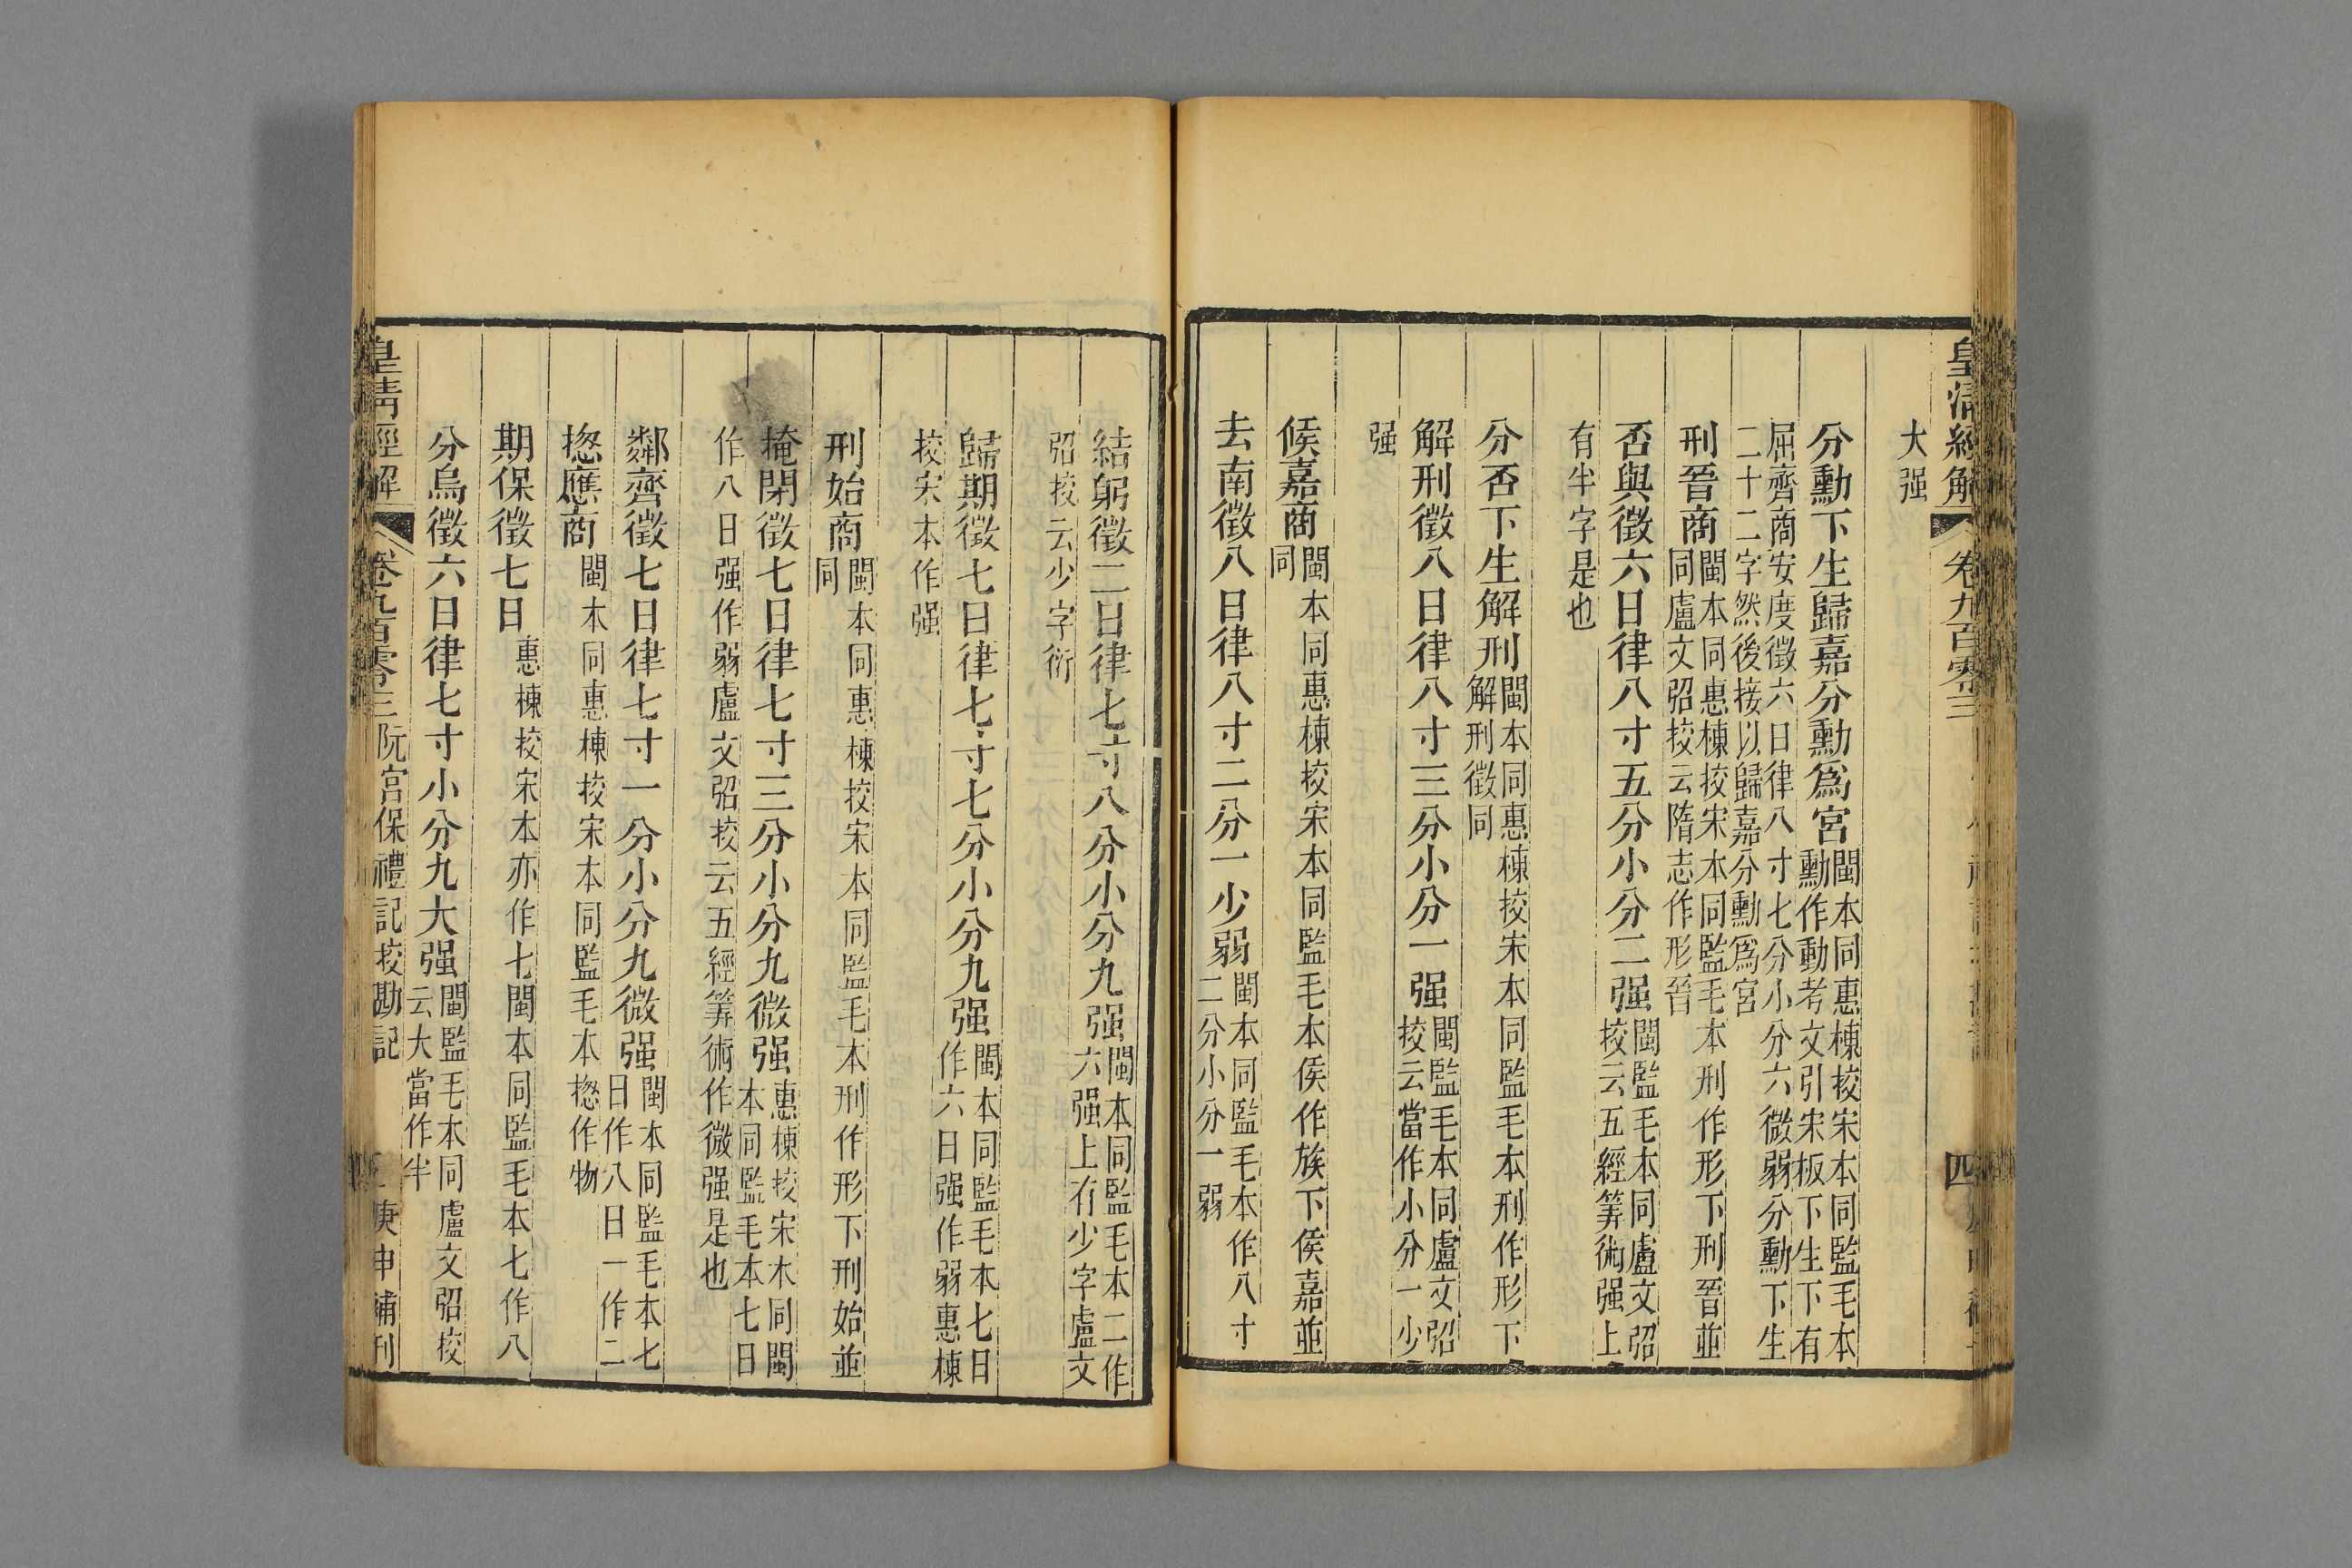 皇清經解 卷九百零三 四
大强
分動下生歸嘉分動爲宮 閩本同惠棟挍宋本同監毛本
動作動考文引宋板下生下有
屈齊商安度徵六日律八寸七分小分六微弱分動下生
二十二字然後接以歸嘉分動爲宮
刑晉商 閩本同惠棟挍宋本同監毛本刑作形下刑晉並
同盧文弨挍云隋志作形晉
否與徵六日律八寸五分小分二强 閩監毛本同盧文弨
挍云五經筭術强上
有半字是也
分否下生解刑 閩本同惠棟挍宋本同監毛本刑作形下
解刑徵同
解刑徵八日律八寸三分小分一强 閩監毛本同盧文弨
挍云當作小分一少
强
候嘉商 閩本同惠棟挍宋本同監毛本侯作族下侯嘉並
同
去南徵八日律八寸二分一少弱 閩本同監毛本作八寸
二分小分一弱
結躬徵二日律七寸八分小分九强 閩本同監毛本二作
六强上有少字盧文
弨挍云少字衍
歸期徵七日律七寸七分小分九强 閩本同監毛本七日
作六日强作弱惠棟
挍宋本作强
刑始商 閩本同惠棟挍宋本同監毛本刑作形下刑始並
同
掩閉徵七日律七寸三分小分九微强 惠棟挍宋本同閩
本同監毛本七日
作八日强作弱盧文弨挍云五經筭術作微强是也
鄰齊徵七日律七寸一分小分九微强 閩本同監毛本七
日作八日一作二
揔應商 閩本同惠棟挍宋本同監毛本揔作物
期保徵七日 惠棟挍宋本亦作七閩本同監毛本七作八
分烏徵六日律七寸小分九大强 閩監毛本同盧文弨挍
云大當作半
皇清經解 卷九百零三 阮宮保禮記挍勘記 庚申補刊